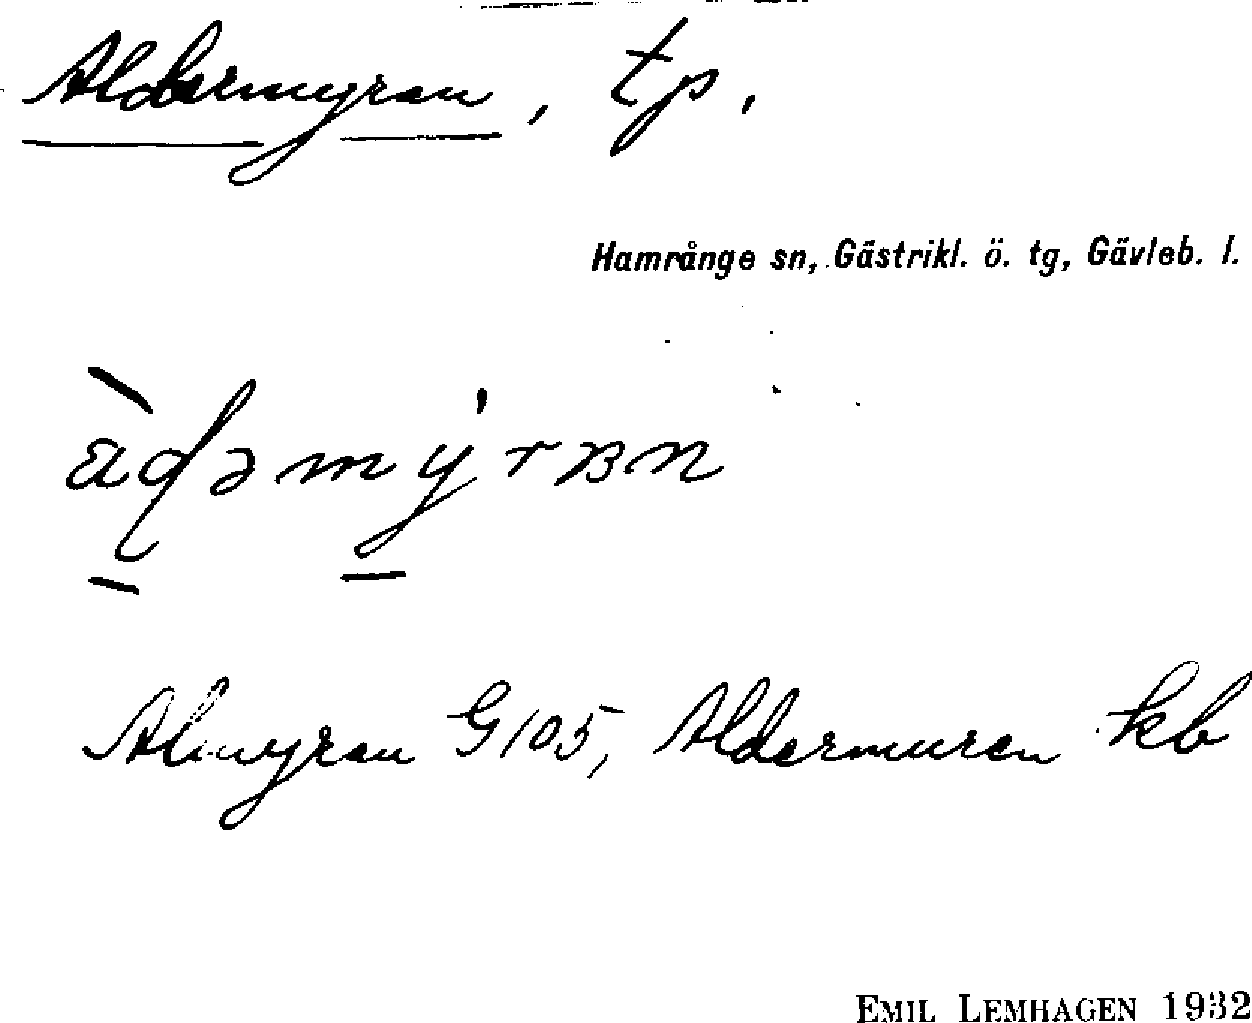 Aldermyran, tp.
Hamrånge sn, Gästrikl. ö. tg, Gävleb. l.
Almyran G105, Aldermuren kb
EMIL LEMHAGEN 1932